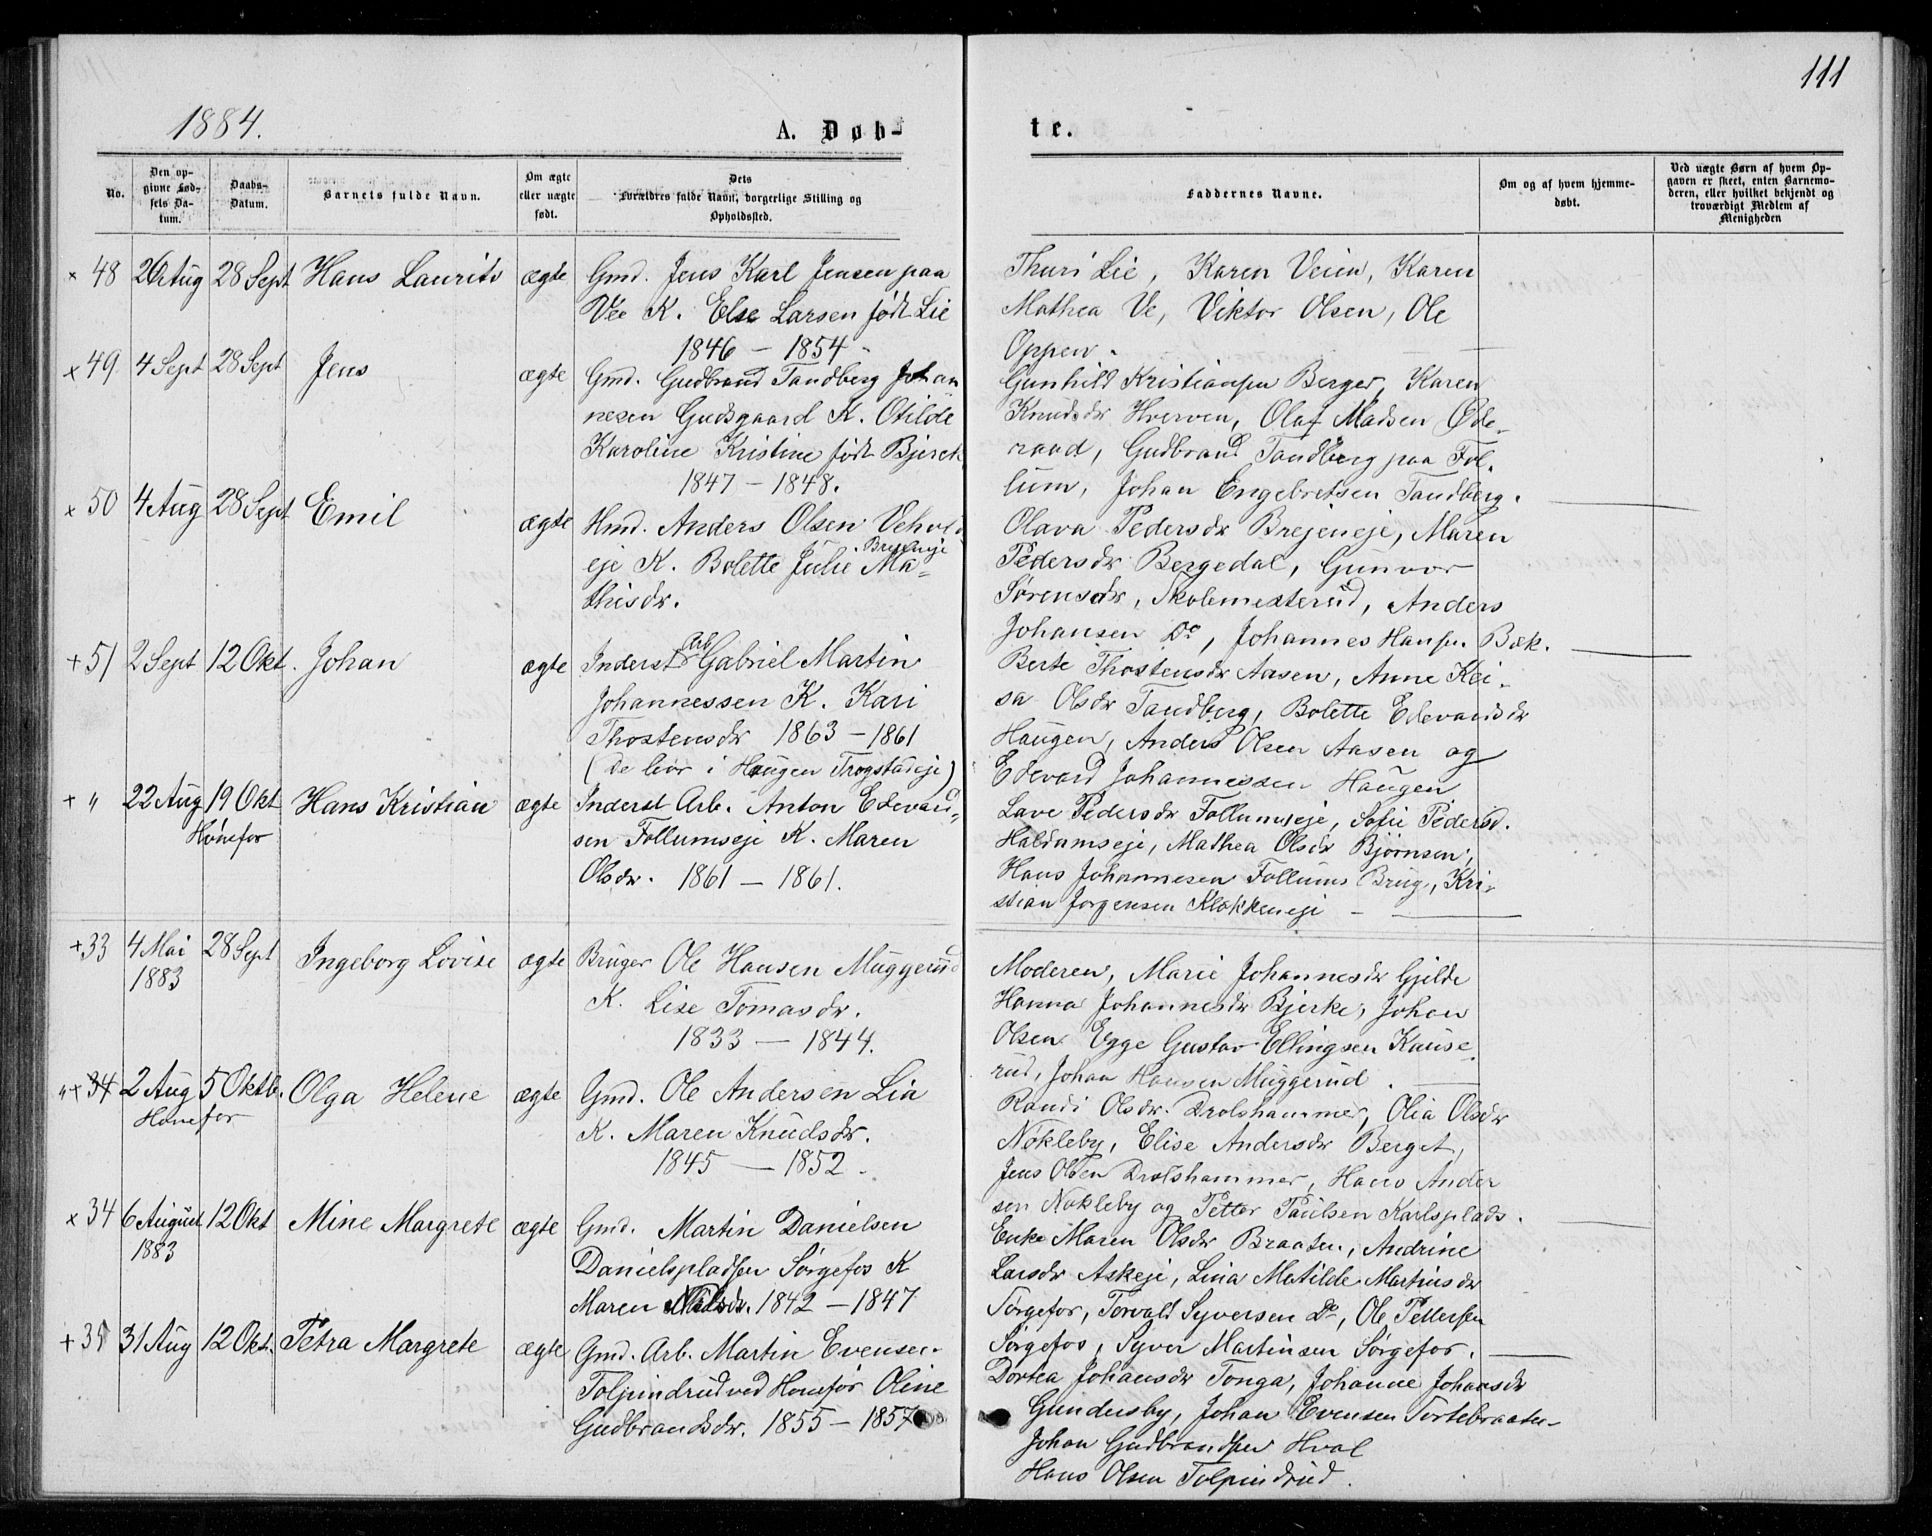 111
1884.
A. Døb-
te.
No.
Den op-
givne Fød-
sels Da-
tum.
Daabs-
Datum.
Barnets fulde Navn.
Om ægte
eller uægte
født.
Dets
Forældres fulde Navn, borgerlige Stilling og
Opholdssted.
Faddernes Navne.
Om og af hvem hjemme-
døbt.
Ved uægte Børn af hvem Op-
gaven er skeet, enten Barnemo-
deren, eller hvilket bekjendt og
troværdigt Medlem af
Menigheden
× 48 26 Aug 28 Sept Hans Laurits ægte Gmd. Jens Karl Jensen paa
Vee K. Else Larsen født Lie
1846 – 1854
Thuri Lie, Karen Veien, Karen
Mathea Ve, Viktor Olsen, Ole
Oppen.
× 49 4 Sept 28 Sept Jens ægte Gmd. Gudbrand Tandberg Johan
nesen Gudsgaard K. Otilde
Karoline Kristine født Bjerck
1847 – 1848.
Gunhild Kristiansen Berger, Karen
Knudsdr Hverven, Olaf Madsen Øde-
raad, Gudbrand Tandberg paa Fol-
lum, Johan Engebretsen Tandberg.
× 50 4 Aug 28 Sept Emil ægte Hmd. Anders Olsen Vehvlds
Brejeneje
eje K. Bolette Julie Ma-
thisdr.
Olava Pedersdr Brejeneje, Maren
Pedersdr Bergedal, Gunvor
Sørensdr, Skolemesterud, Anders
Johansen Do, Johannes Hansen Bæk.
+ 51 2 Sept 12 Okt. Johan ægte Inderst Arb Gabriel Martin
Johannessen K. Kari
Thostensdr 1863 – 1861
(de bor i Haugen Trogstadeje)
Berte Thostensdr Aasen, Anne Kai-
sa Olsdr Tandberg, Bolette Edevardsdr
Haugen, Anders Olsen Aasen og
Edevard Johannessen Haugen
+ " 22 Aug 19 Okt Hans Kristian ægte Inderst Arb. Anton Edevard-
Hønefos
sen Follumseje K. Maren
Olsdr. 1861 – 1861.
Lave Pedersdr Follumseje, Sofie Pedersd.
Haldumseje, Mathea Olsdr Bjørnsen,
Hans Johannesen Follums Brug, Kri-
stian Jorgensen Klokkeneje
+ 33 4 Mai 28 Sept Ingeborg Lovise ægte Bruger Ole Hansen Muggerud
1883
K. Lise Tomasdr.
1833 – 1844.
Moderen, Marie Johannesdr Gjilde
Hanna Johannesdr Bjerke, Johan
Olsen Egge Gustav Ellingsen Kause-
rud, Johan Hansen Muggerud.
"× 34 2 Aug 5 Oktb. Olga Helene ægte Gmd. Ole Andersen Lia
Honefos
K. Maren Knudsdr.
1845 – 1852.
Randi Olsdr. Drolshammer, Olia Olsdr
Nokleby, Elise Andersdr Berget,
Jens Olsen Drolshammer, Hans Ander
sen Nokleby og Petter Paulsen Karlsplads.
× 34 6 August 12 Okt Mine Margrete ægte Gmd. Martin Danielsen
1883
Danielspladsen Sørgefos K
Maren Nilsdr. 1842 – 1847
Enke Maren Olsdr Braaten, Andrine
Larsdr Askeje, Lina Matilde Martinsdr
Sørgefos, Torvald Syversen Do, Ole Pettersen
Sørgefos, Syver Martinsen Sørgefos.
+ 35 31 Aug 12 Okt. Petra Margrete ægte Gmd. Arb. Martin Evensen
Tolpindrud ved Honefos Oline
Gudbrandsdr. 1855 – 1857
Dortea Johansdr Tonga, Johanne Johansdr
Gundersby, Johan Evensen Tortebraaten
Johan Gudbrandsen Hval
Hans Olsen Tolpindrud.